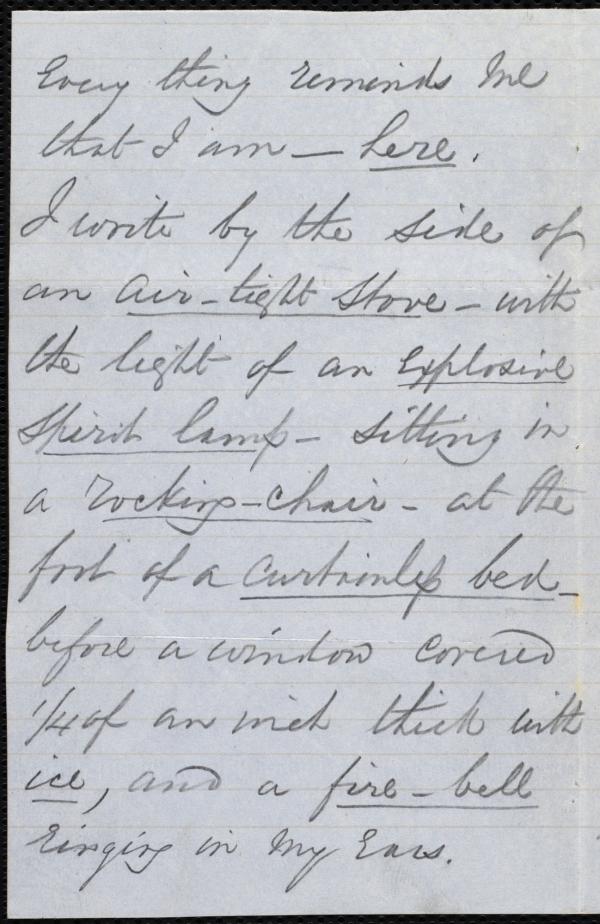 Every thing reminds me
that I am — here.
I write by the side of
an air-tight stove – with
the light of an explosive
spirit lamp – sitting in
a rocking-chair – at the
foot of a curtainless bed –
before a window covered
1/4 of an inch thick with
ice, and a fire-bell
ringing in my ears.